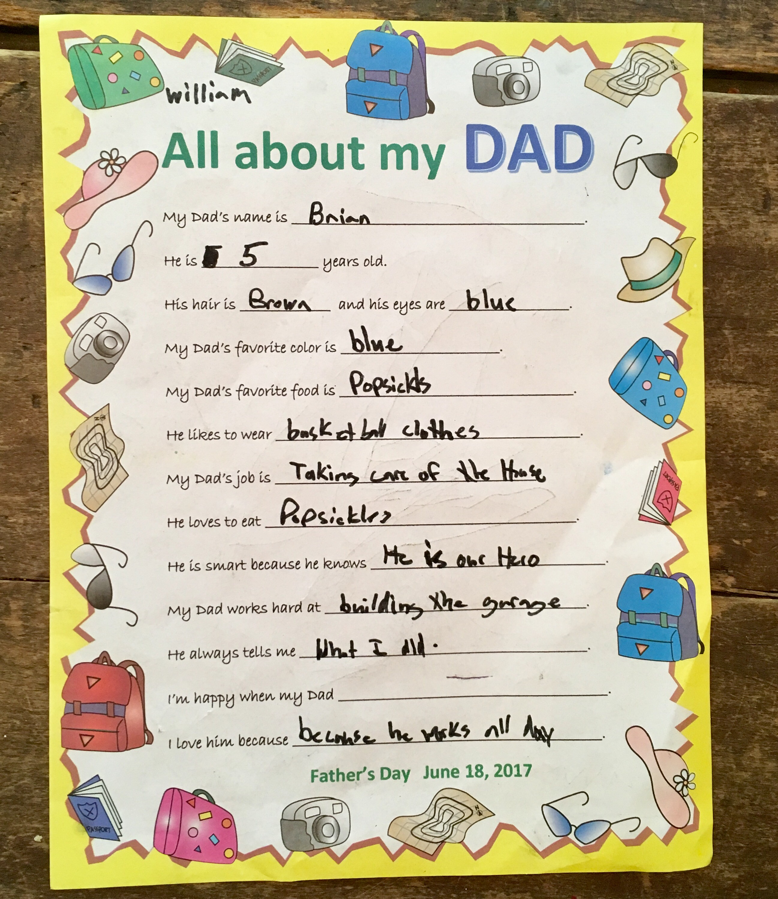 william
All about my DAD
My Dad's name is Brian.
He is 5 years old.
His hair is Brown and his eyes are blue.
My Dad's favorite color is blue.
My Dad's favorite food is Popsickls.
He likes to wear basketball clothes.
My Dad's job is Taking care of the House
He loves to eat Popsickles.
He is smart because he knows He is our Hero.
My Dad works hard at building the garage.
He always tells me What I did.
I'm happy when my Dad.
I love him because because he works all day.
Father's Day June 18, 2017